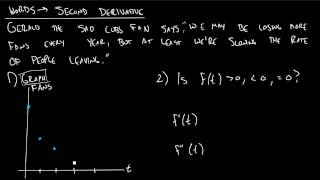 WORDS → SECOND DERIVATIVE
GERALD THE SAD CUBS FAN SAYS, "WE MAY BE LOSING MORE
FANS EVERY YEAR, BUT AT LEAST WE'RE SLOWING THE RATE
OF PEOPLE LEAVING."
1) GRAPH
FANS
t
2) Is f(t) >0, <0, =0?
f'(t)
f"(t)